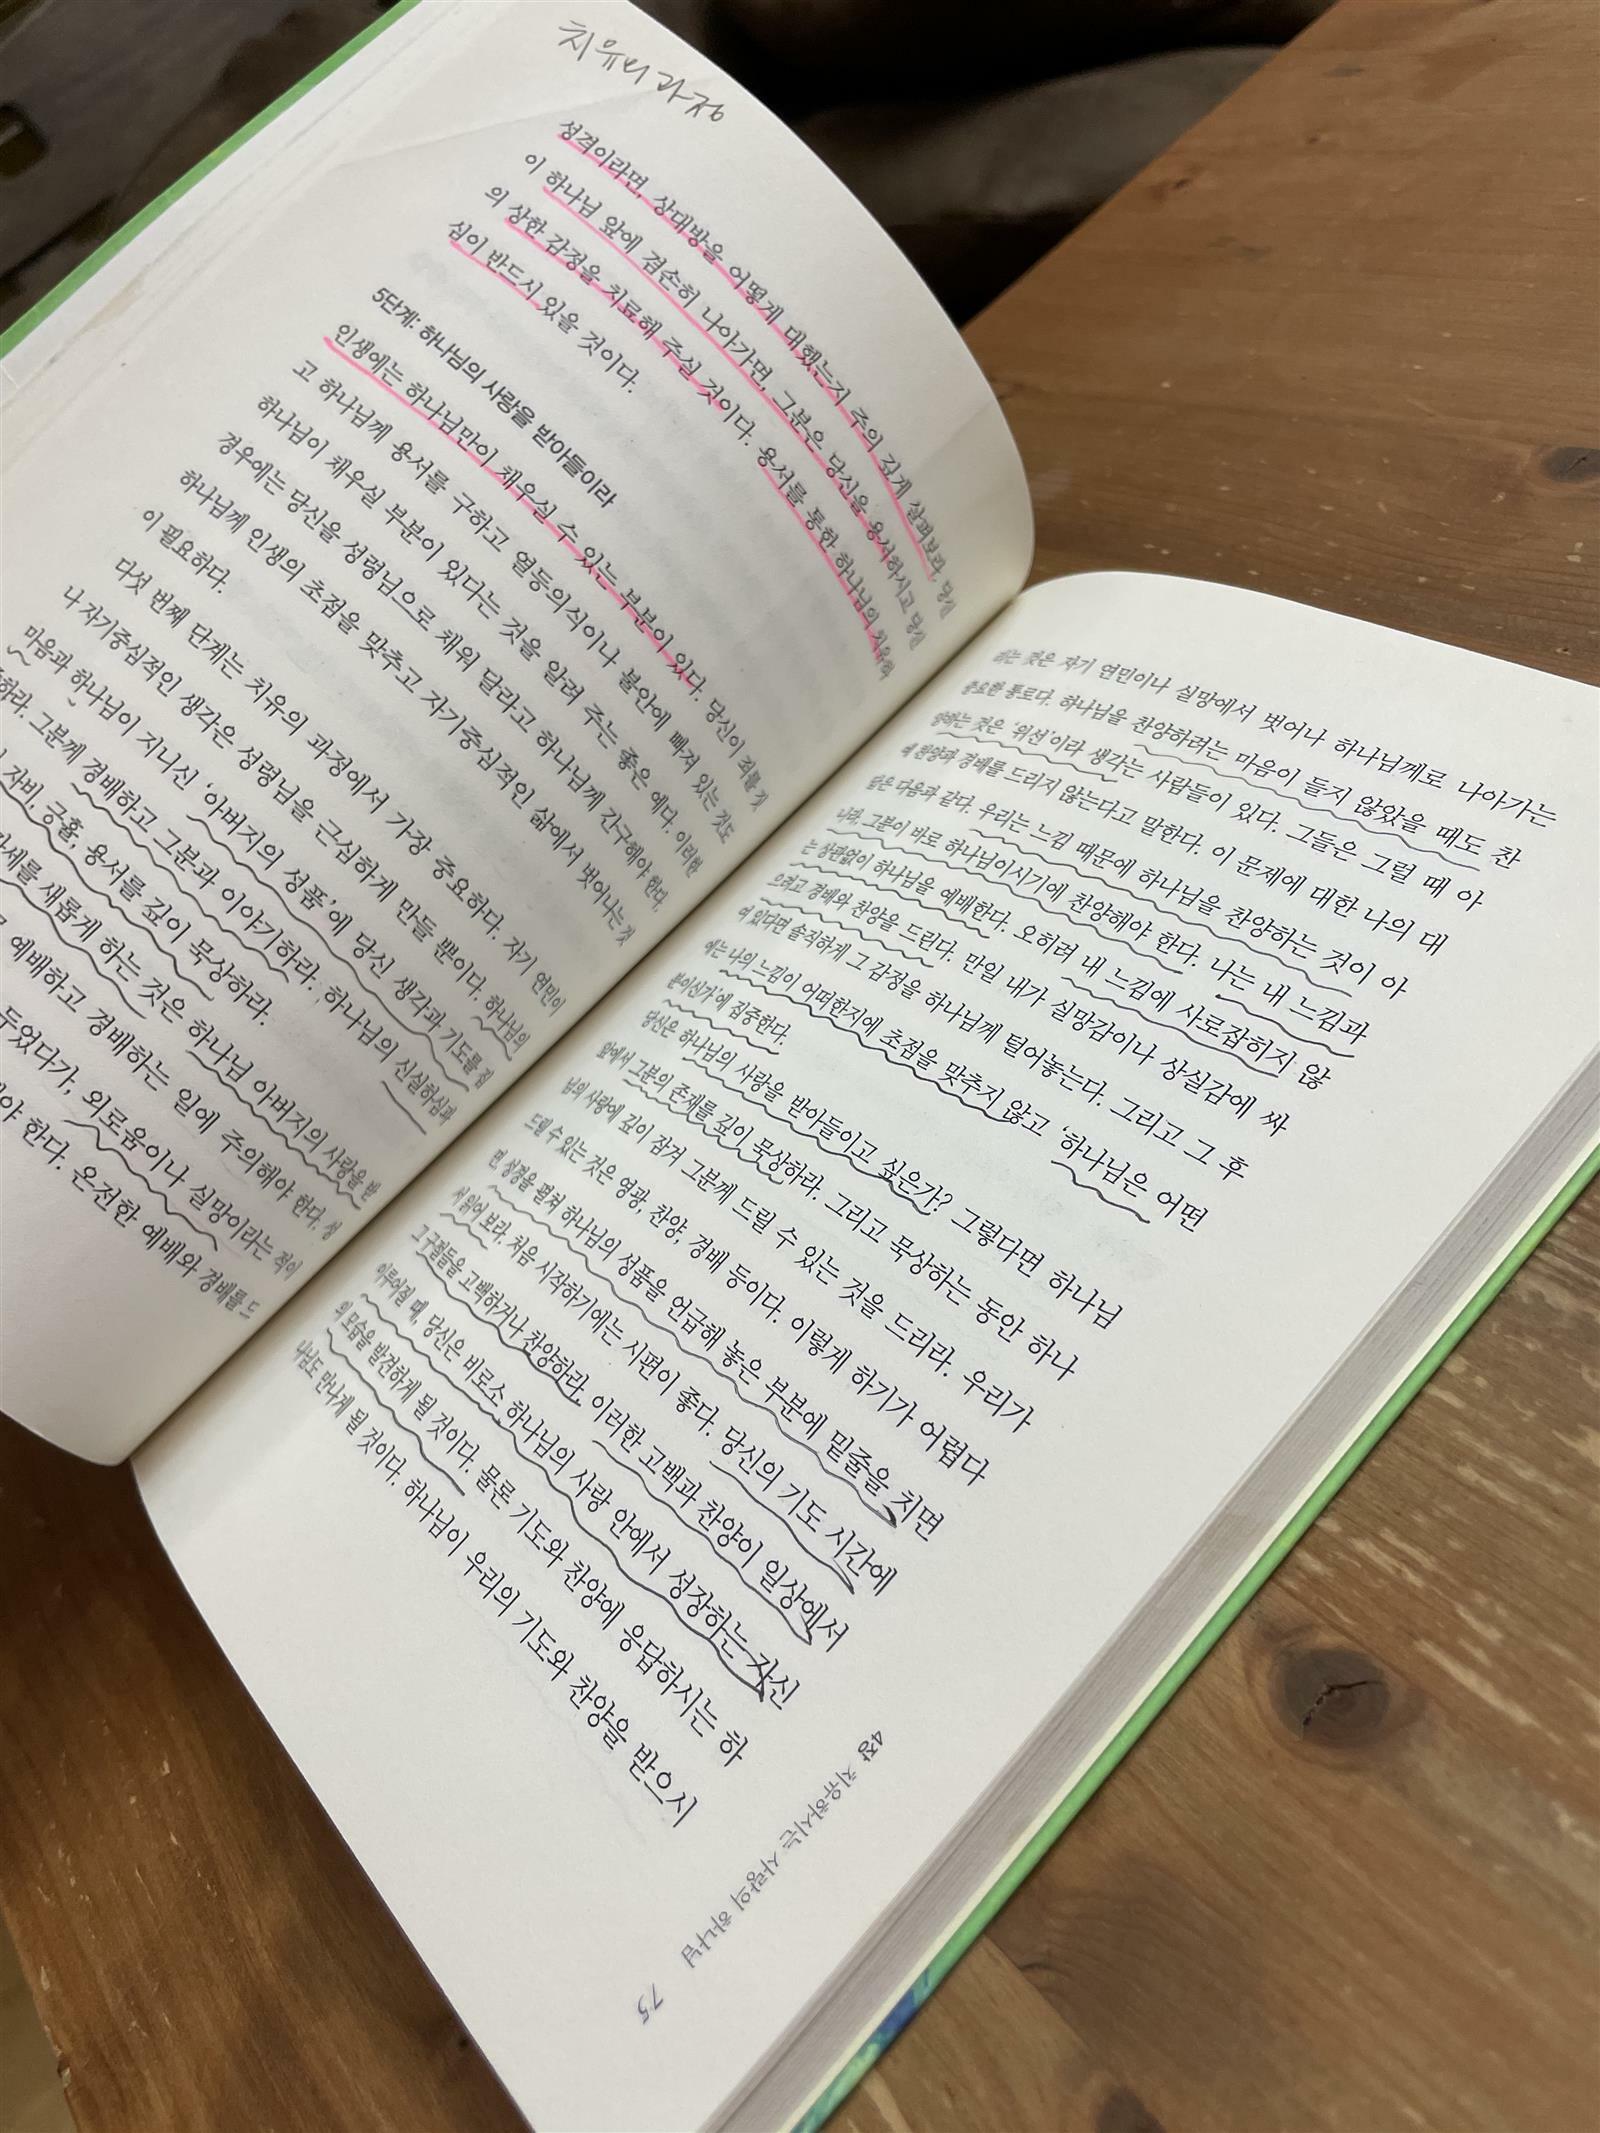 치유의 과정
성격이라면, 상대방을 어떻게 대했는지 주의 깊게 살펴보라. 당신
이 하나님 앞에 겸손히 나아가면, 그분은 당신을 용서하시고 당신
의 상한 감정을 치료해 주실 것이다. 용서를 통한 하나님의 치유하
심이 반드시 있을 것이다.
5단계: 하나님의 사랑을 받아들이라
인생에는 하나님만이 채우실 수 있는 부분이 있다. 당신이 죄를 짓
고 하나님께 용서를 구하고 열등의식이나 불안에 빠져 있는 것도
하나님이 채우실 부분이 있다는 것을 알려 주는 좋은 예다. 이러한
경우에는 당신을 성령님으로 채워 달라고 하나님께 간구해야 한다.
하나님께 인생의 초점을 맞추고 자기중심적인 삶에서 벗어나는 것
이 필요하다.
다섯 번째 단계는 치유의 과정에서 가장 중요하다. 자기 연민이
나 자기중심적인 생각은 성령님을 근심하게 만들 뿐이다. 하나님의
마음과 하나님이 지니신 '아버지의 성품'에 당신 생각과 기도를 집
하라. 그분께 경배하고 그분과 이야기하라. 하나님의 신실하심과
자비, 긍휼, 용서를 깊이 묵상하라.
세를 새롭게 하는 것은 하나님 아버지의 사랑을 받
예배하고 경배하는 일에 주의해야 한다. 성
두었다가, 외로움이나 실망이라는 적이
야 한다. 온전한 예배와 경배를 드
리는 것은 자기 연민이나 실망에서 벗어나 하나님께로 나아가는
중요한 통로다. 하나님을 찬양하려는 마음이 들지 않았을 때도 찬
양하는 것은 '위선'이라 생각하는 사람들이 있다. 그들은 그럴 때 아
예 찬양과 경배를 드리지 않는다고 말한다. 이 문제에 대한 나의 대
답은 다음과 같다. 우리는 느낌 때문에 하나님을 찬양하는 것이 아
니라, 그분이 바로 하나님이시기에 찬양해야 한다. 나는 내 느낌과
는 상관없이 하나님을 예배한다. 오히려 내 느낌에 사로잡히지 않
으려고 경배와 찬양을 드린다. 만일 내가 실망감이나 상실감에 싸
여 있다면 솔직하게 그 감정을 하나님께 털어놓는다. 그리고 그 후
에는 나의 느낌이 어떠한지에 초점을 맞추지 않고 '하나님은 어떤
분이신가'에 집중한다.
당신은 하나님의 사랑을 받아들이고 싶은가? 그렇다면 하나님
앞에서 그분의 존재를 깊이 묵상하라. 그리고 묵상하는 동안 하나
님의 사랑에 깊이 잠겨 그분께 드릴 수 있는 것을 드리라. 우리가
드릴 수 있는 것은 영광, 찬양, 경배 등이다. 이렇게 하기가 어렵다
면, 성경을 펼쳐 하나님의 성품을 언급해 놓은 부분에 밑줄을 치면
서 읽어 보라. 처음 시작하기에는 시편이 좋다. 당신의 기도 시간에
그 구절들을 고백하거나 찬양하라. 이러한 고백과 찬양이 일상에서
이루어질 때, 당신은 비로소 하나님의 사랑 안에서 성장하는 자신
의 모습을 발견하게 될 것이다. 물론 기도와 찬양에 응답하시는 하
나님도 만나게 될 것이다. 하나님이 우리의 기도와 찬양을 받으시
4장 치유하시는 사랑의 하나님
75